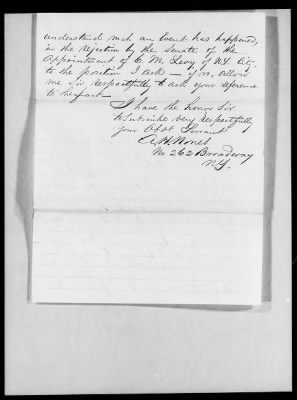 understand such an Event has happened,
in the rejection by the Senate of the
appointment of C. M. Levy of N.Y. City
to the position I ask – you, allow
me sir respectfully to ask your reference
to the fact –
I have the honor Sir
to subscribe very respectfully
Your Obdt Servant
A. H. Nones
No 262 Broadway
N.Y.